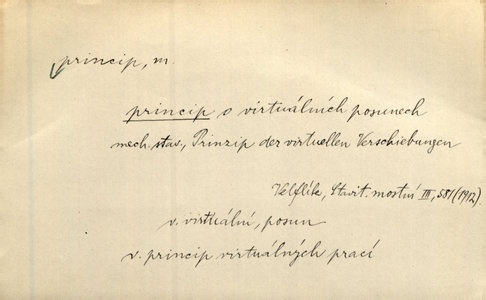 princip, m.
princip o virtuálních posunech
mech. stav., Prinzip der virtuellen Verschiebungen
Velflík, Stavit. mostní III, 581 (1912)
v. virtuální, posun
v. princip virtuálných prací